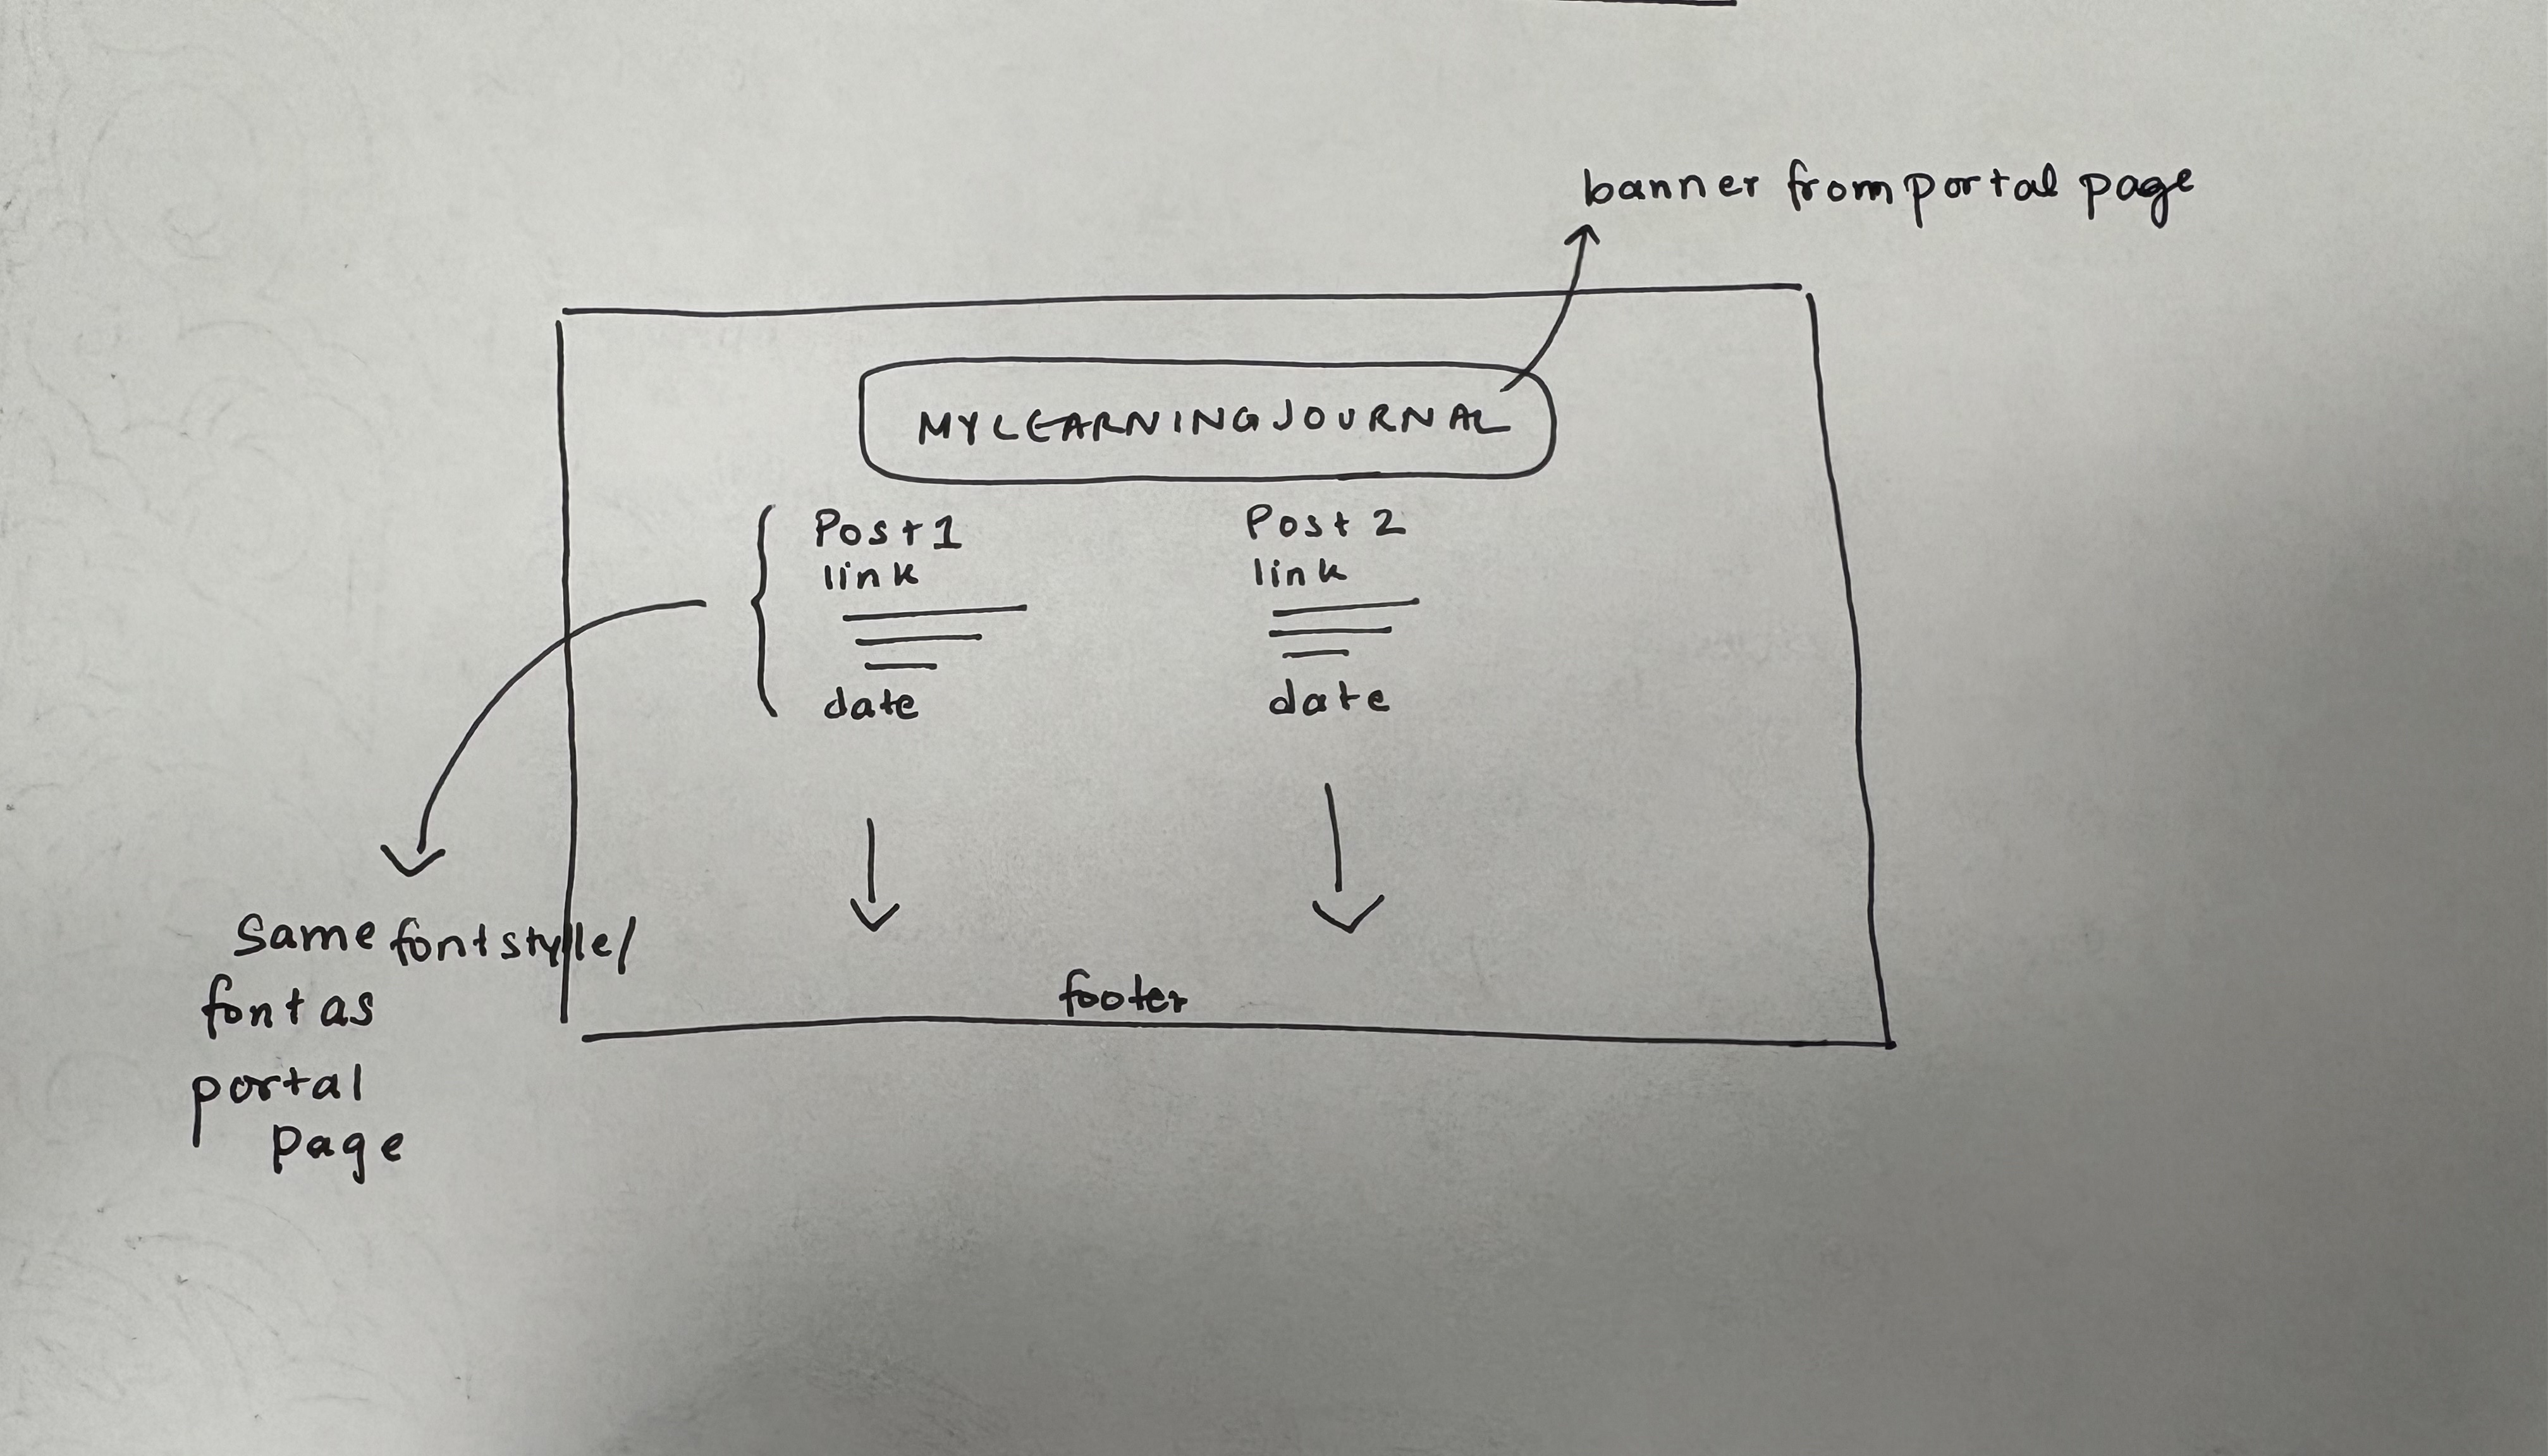 banner from portal page
MYLEARNINGJOURNAL
Post 1
link
date
Post 2
link
date
same fontstyle/
font as
portal
page
footer